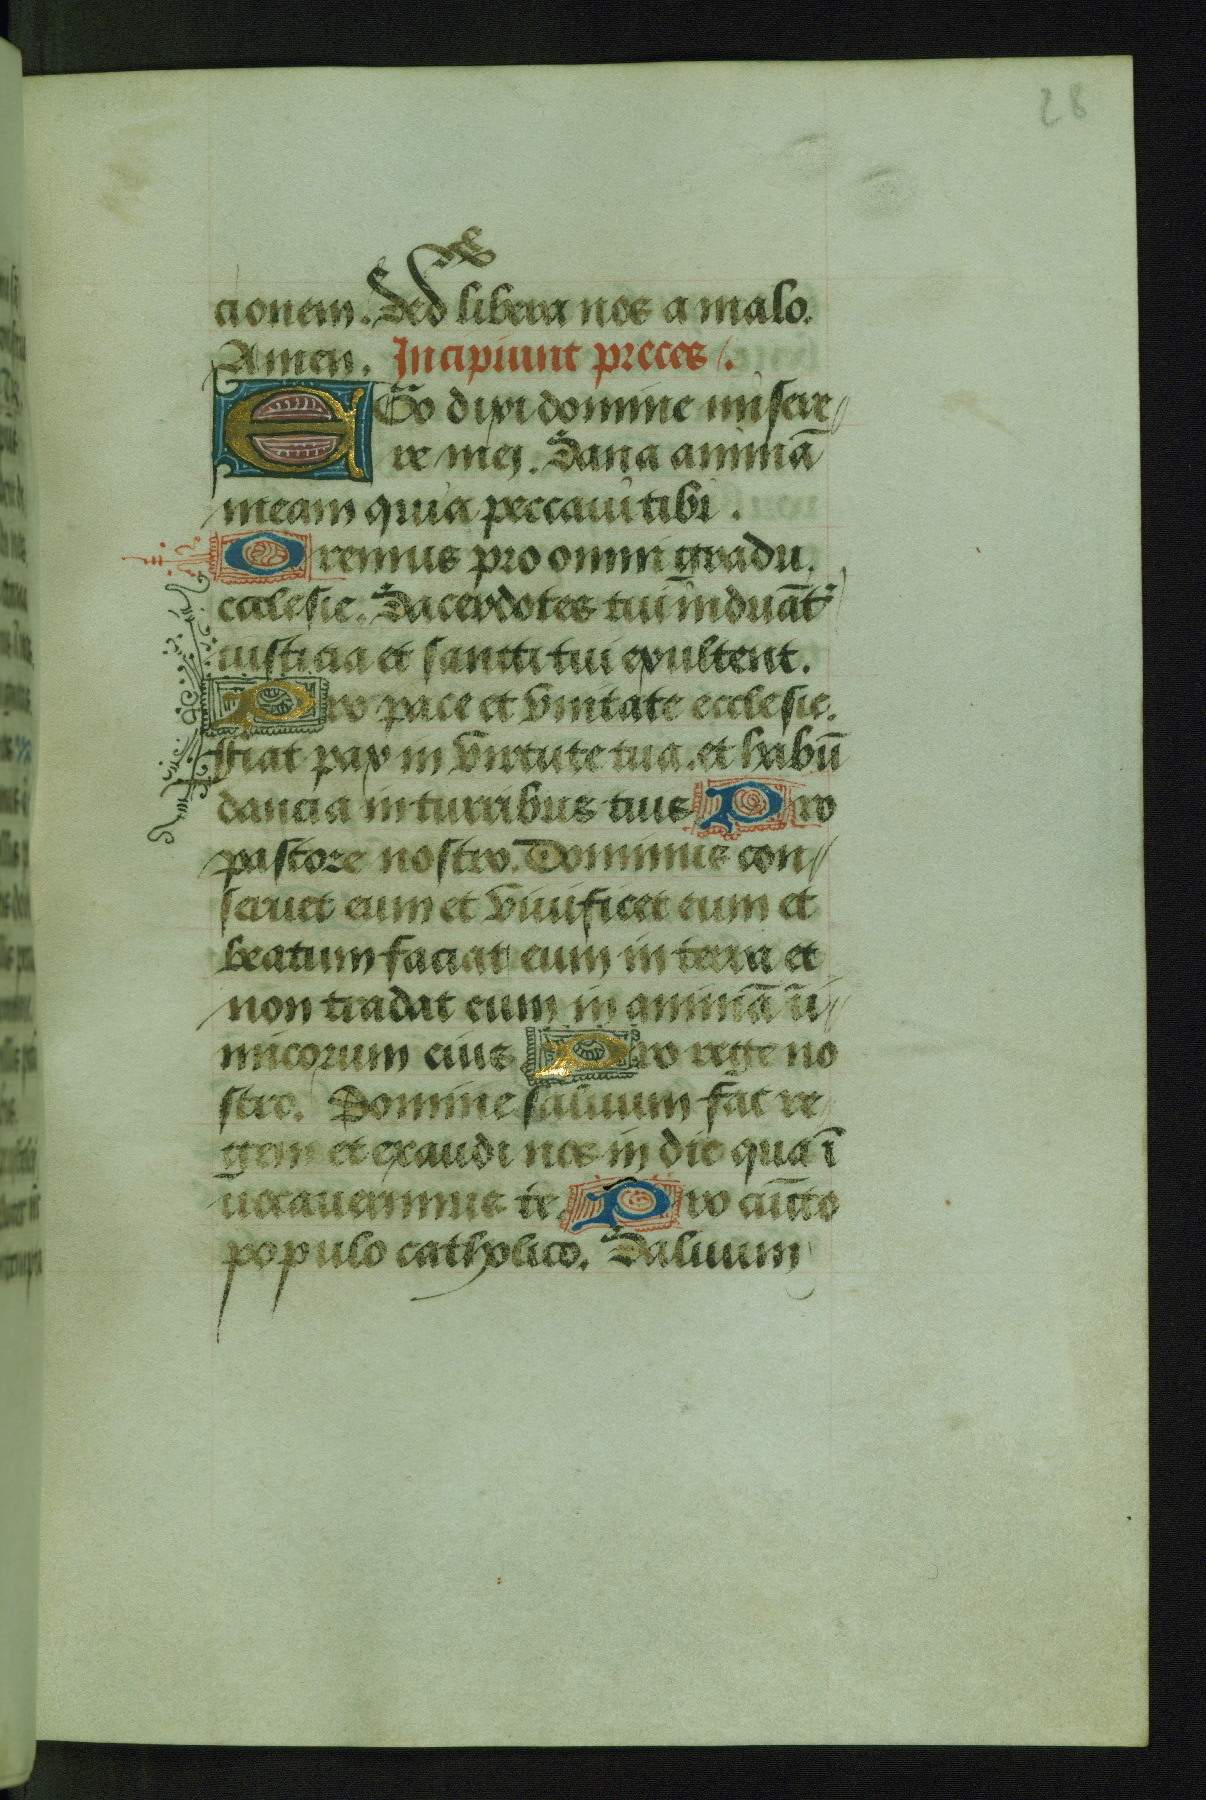 28
cionem. Sed libera nos a malo.
Amen. Incipiunt preces.
EGo dixi domine misere
re mei. Sana animā
meam quia peccaui tibi.
Oremus pro omni gradu
ecclesie. Sacerdotes tui induāt
iusticia et sancti tui exultent.
Pro pace et vnitate ecclesie.
Fiat pax in virtute tua. et habū
dancia in turribus tuis Pro
pastore nostro. Dominus con
seruet eum et viuificet eum et
beatum faciat eum in terra et
non tradat eum in animā ini
micorum eius Pro rege no
stro. Domine saluum fac re
gem et exaudi nos in die qua ī
uocauerimus te. Pro cūcto
populo catholico. Saluum